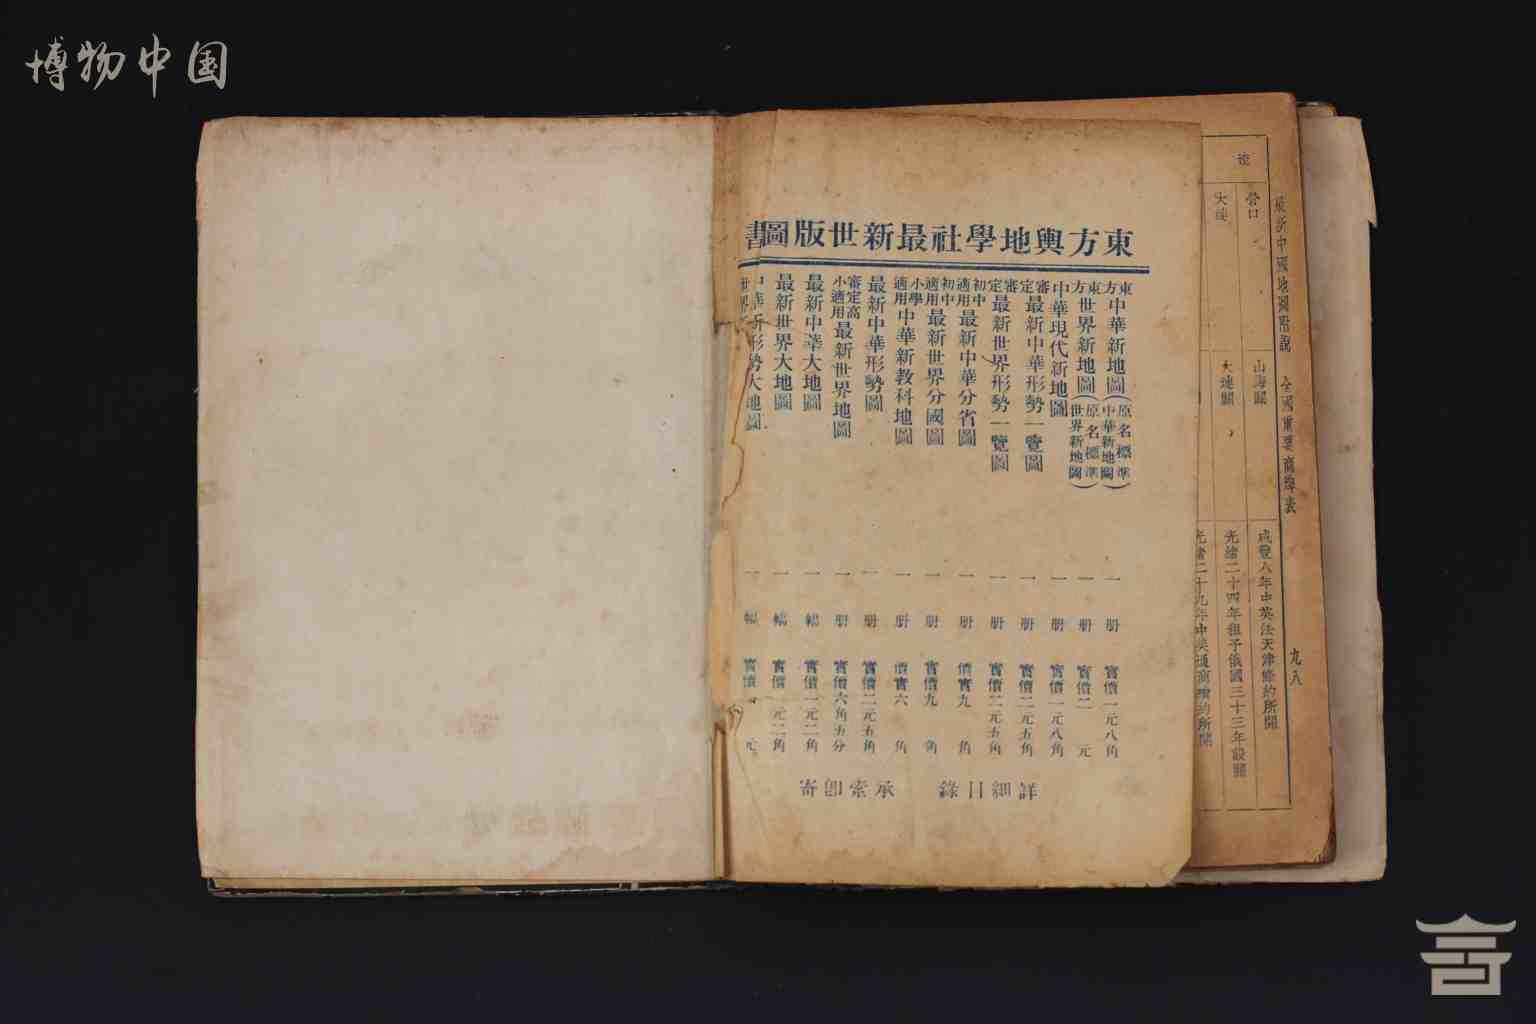 博物中国
東方輿地學社最新世版圖書
東方中華新地圖(原名標準中華新地圖)一册 實價一元八角
東方世界新地圖(原名標準世界新地圖)一册 實價二元
中華現代新地圖 一册 實價一元八角
審定最新中華形勢一覽圖 一册 實價二元五角
審定最新世界形勢一覽圖 一册 實價二元五角
初中適用最新中華分省圖 一册 價實九角
初中適用最新世界分國圖 一册 實價九角
小學適用中華新教科地圖 一册 價實六角
最新中華形勢圖 一册 實價二元五角
審定高小適用最新世界地圖 一册 實價六角五分
最新中華大地圖 一幅 實價一元二角
最新世界大地圖 一幅 實價一元二角
中華新形勢大地圖 一幅 實價 元
世界
詳細目錄 承索卽寄
最新中國地圖附說 全國重要商埠表 九八
營口 山海關 咸豐八年中英法天津條約所開
大連 大連關 光緒二十四年租予俄國三十三年設關
光緒二十九年中美通商續約所開